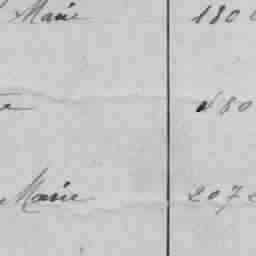 Marie 180
180
Marie 207